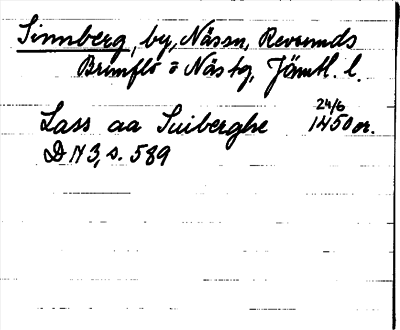 Sinnberg, by, NäsSn, Revsunds
Brunflo o Näs tg, Jämtl. l.
24/6
Lass aa Suiberghe 1450 or.
D N 3, s. 589